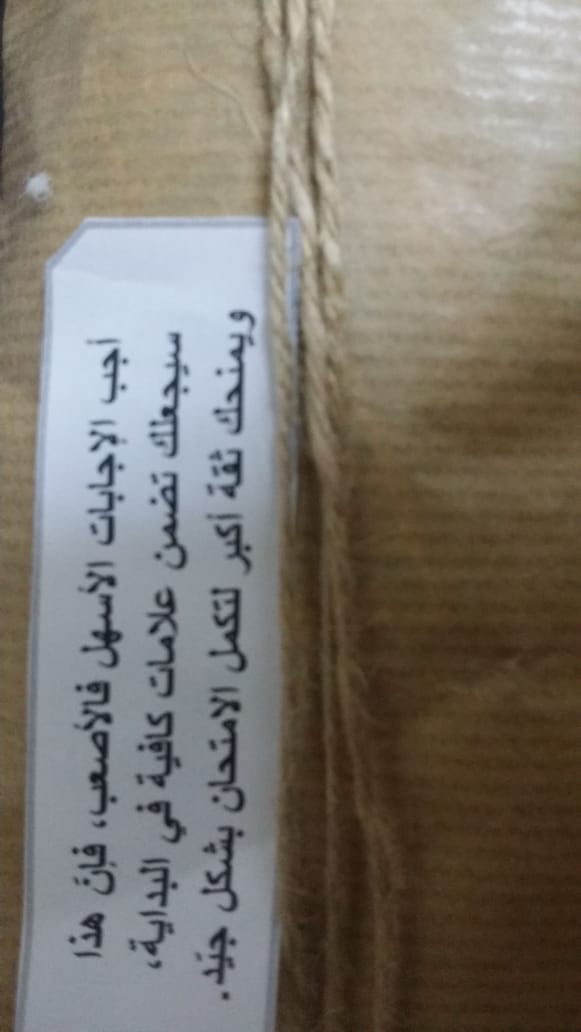 أجب الإجابات الأسهل فالأصعب، فإنّ هذا
سيجعلك تضمن علامات كافية في البداية،
ويمنحك ثقة أكبر لتكمل الامتحان بشكل جيّد.